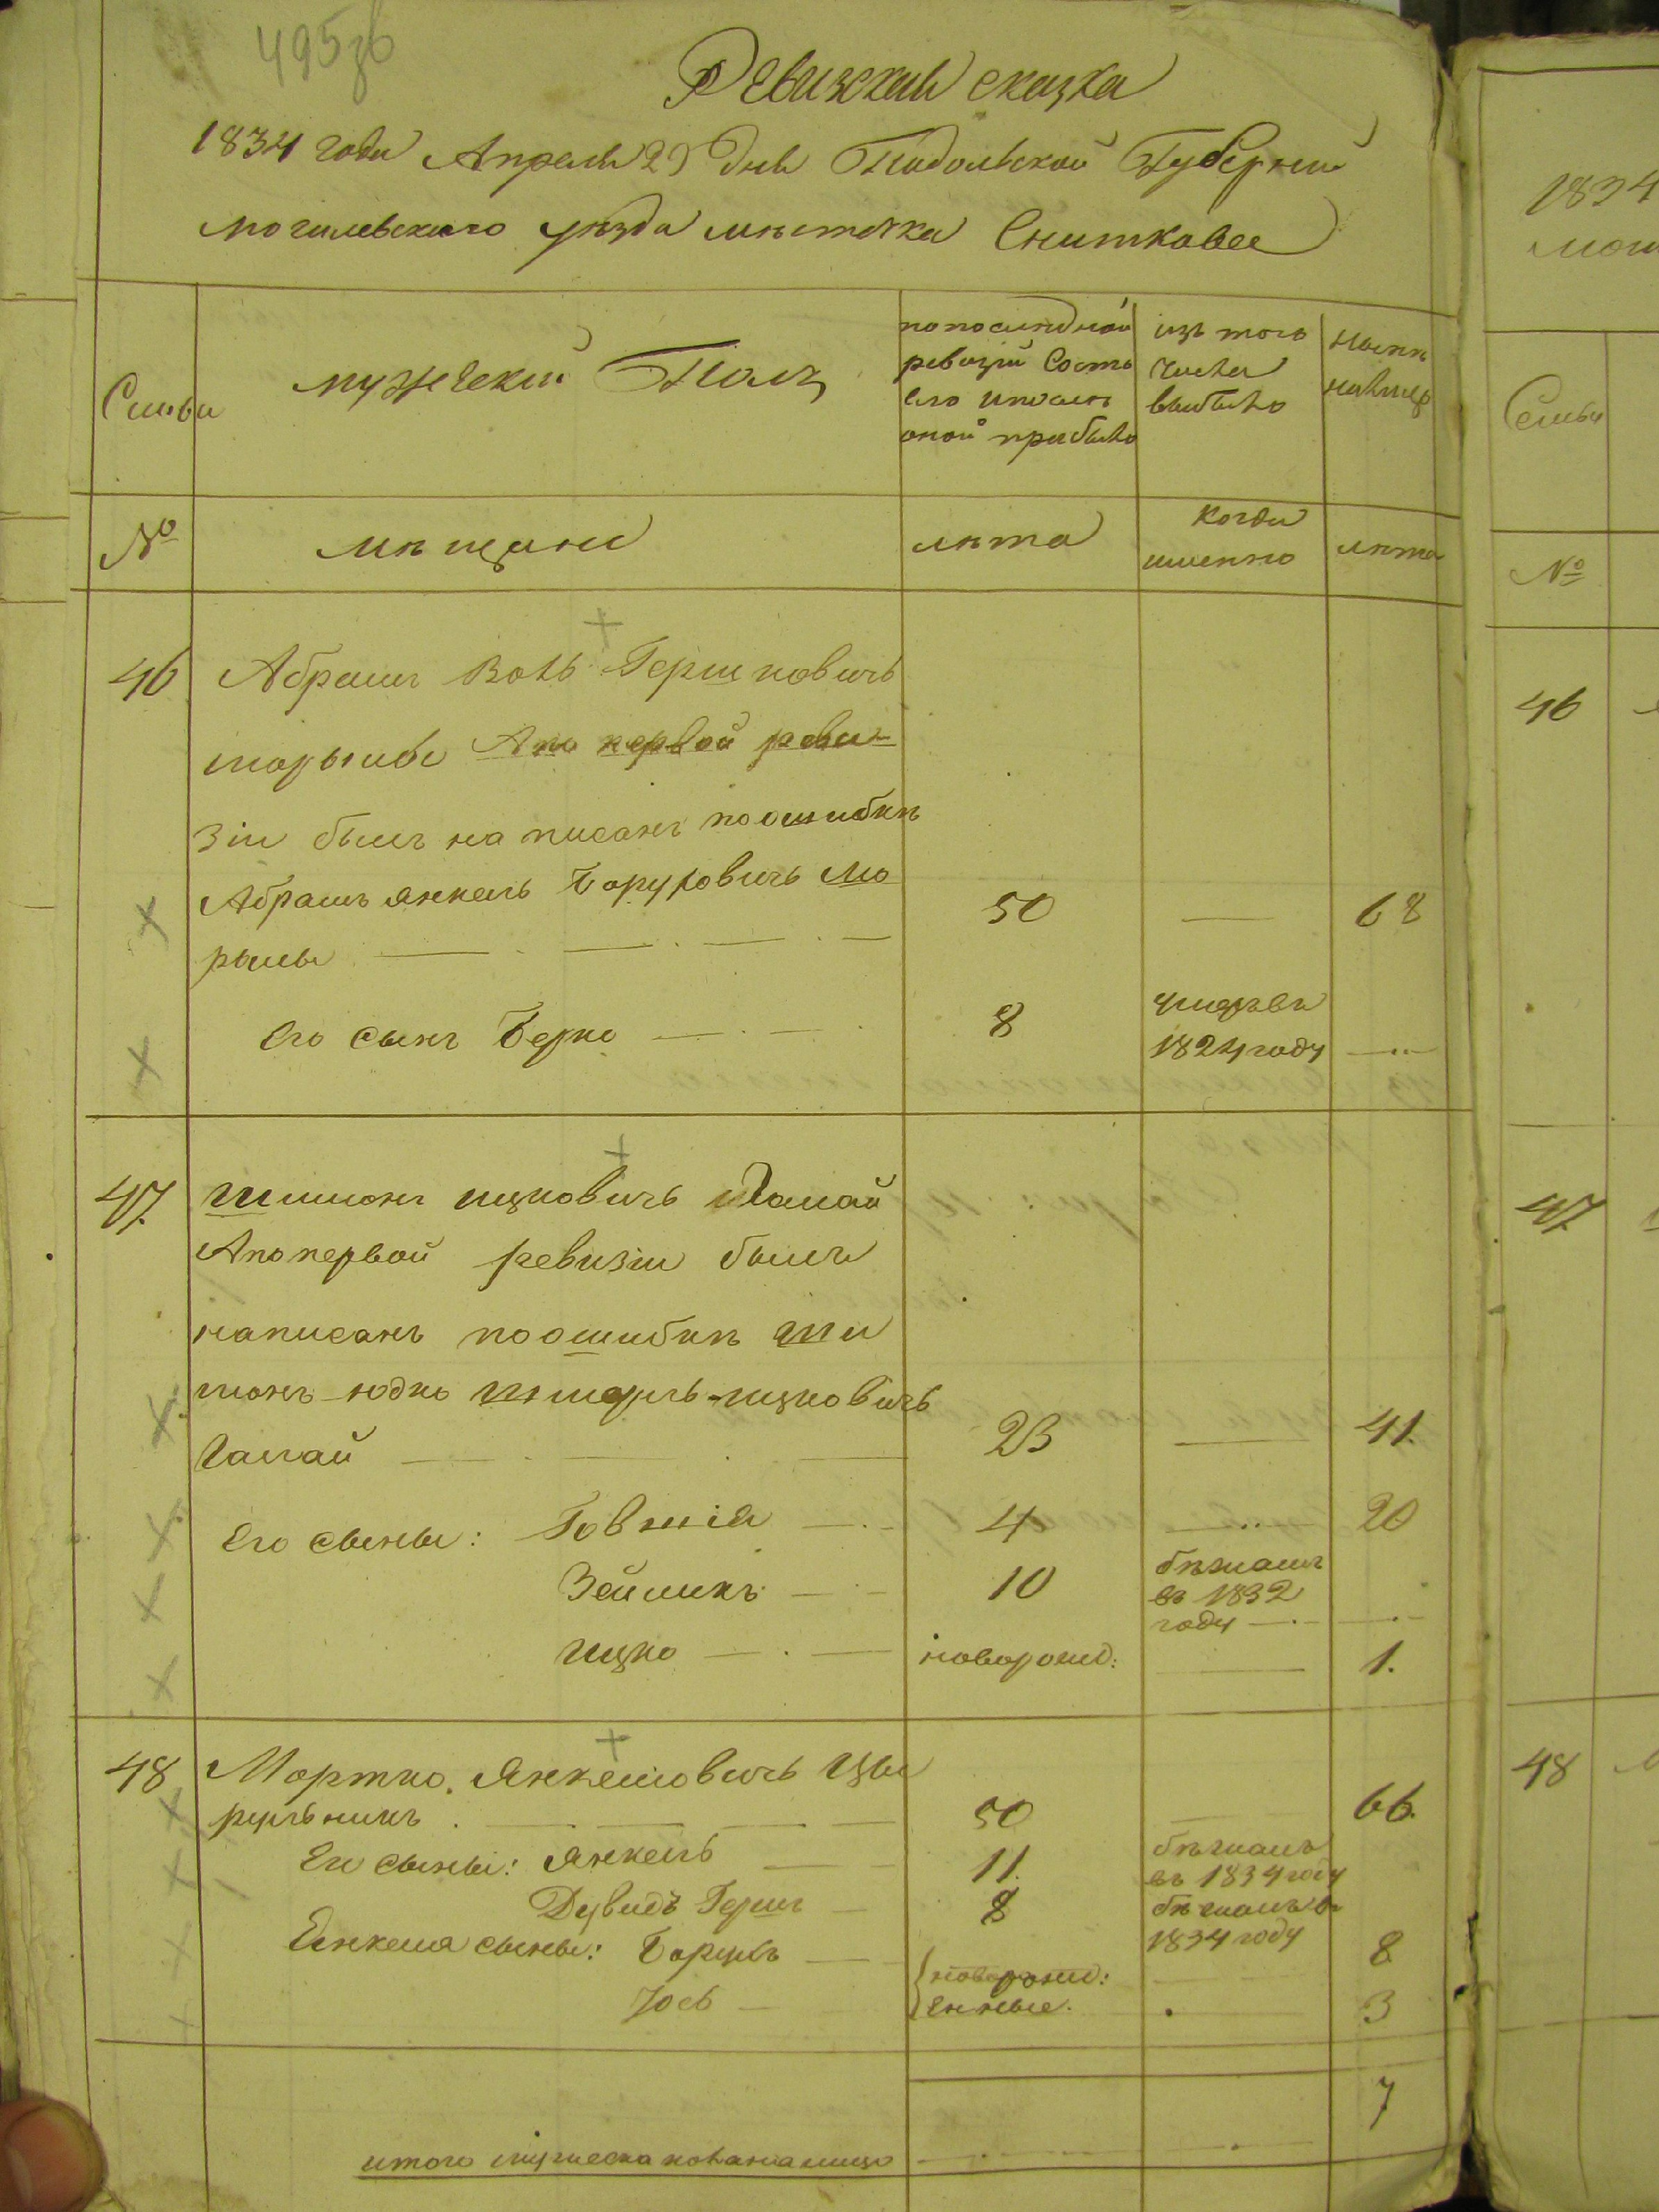 495 зв
Ревизская сказка
1834 года Апреля 29 дня Подольской Губернии
Могилевского уѣзда мѣстечка Снитковее
Семьи
мужеский Полъ
по последней
ревизии состо
яло и после
оной прибыло
изъ того
числа
выбыло
ныне
налицо
№
мѣщане
лѣта
когда
именно
лѣта
46
Абрамъ Воль Гершковичъ
А по первой реви-
зіи былъ написанъ по ошибкѣ
Абрамъ Янкель Боруховичъ Мо
50
68
Его сынъ Берко
8
умеръ въ
1824 году
47.
Шимонъ Ицковичъ Галай
А по первой ревизіи былъ
написанъ по ошибкѣ Ши
монъ-Юдко Ицковичъ
Галай
23
41.
Его сыны: Говшія
4
20
Зейликъ
10
бѣжалъ
въ 1832
году
Ицко
новорожд:
1.
48
Мортко Янкелювичъ Цы
рульникъ
50
66.
Его сыны: Янкель
11.
бѣжалъ
въ 1834 году
Дувидъ Гершъ
8
бѣжалъ въ
1834 году
Янкеля сыны: Борухъ
{новорожд:
8
Іось
енные.
3
7
итого мужеска пола налицо
1834
Мог
Семьи
№
46
47
48